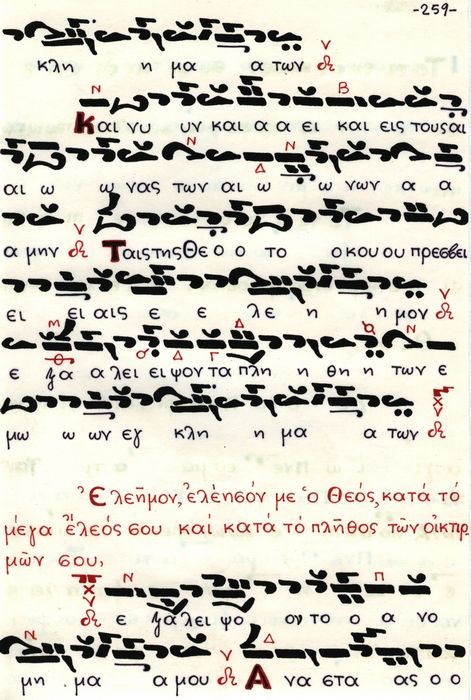 -259-
κλη η μα α των
Και νυ υν και α α ει και εις τους αι
αι ω ω νας των αι ω ω νων α α
α μην Ταις της Θε ο ο το ο κου ου πρεσβει
ει ει αις ε ε λε η η μον
ε ξα α λει ει ψον τα πλη η θη η των ε
μω ω ων εγ κλη η μα α των
Ἐλεῆμον, ἐλέησόν με ὁ Θεός, κατά τό
μέγα ἔλεός σου καί κατά τό πλῆθος τῶν οἰκτιρ
μῶν σου,
ε ξα λει ψο ον το ο α νο
μη μα α μου Α να στα ας ο ο